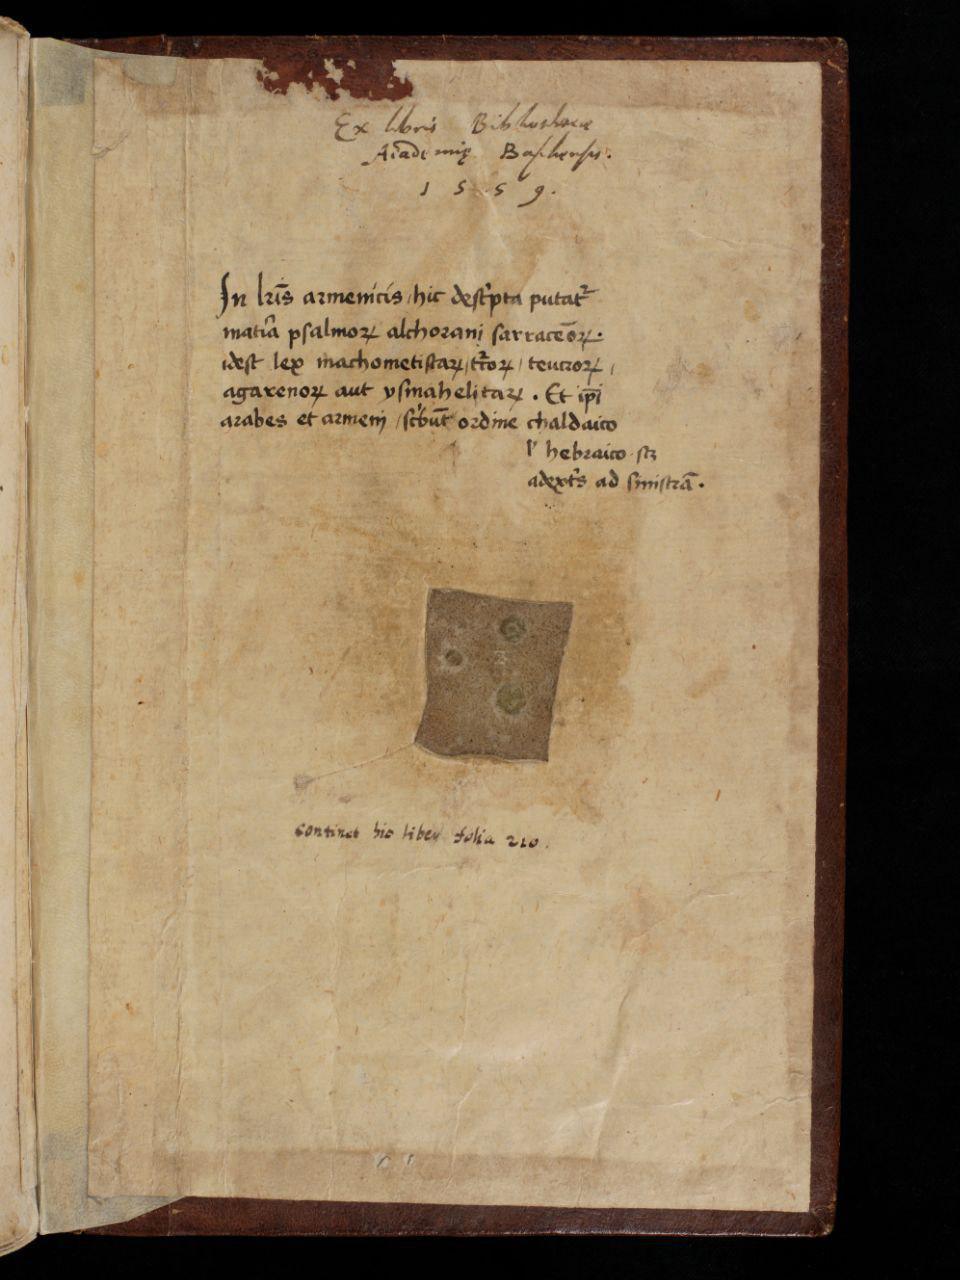 Ex libris Bibliothecæ
Academię Basiliensis.
1 5 5 9.
In lr̄is armenicis / hic desc̓pta putat᷑
mat̓ia psalmoꝝ alchorani sarracēoꝝ.
idest lex machometistaꝝ / t᷑coꝝ / teucroꝝ /
agarenoꝝ aut ysmahelitaꝝ . Et ip̄i
arabes et armenj / sc̓būt ordine chaldaico
l̓ hebraico · scꝫ
adext̓s ad sinistrā .
continet hic liber folia 210 .